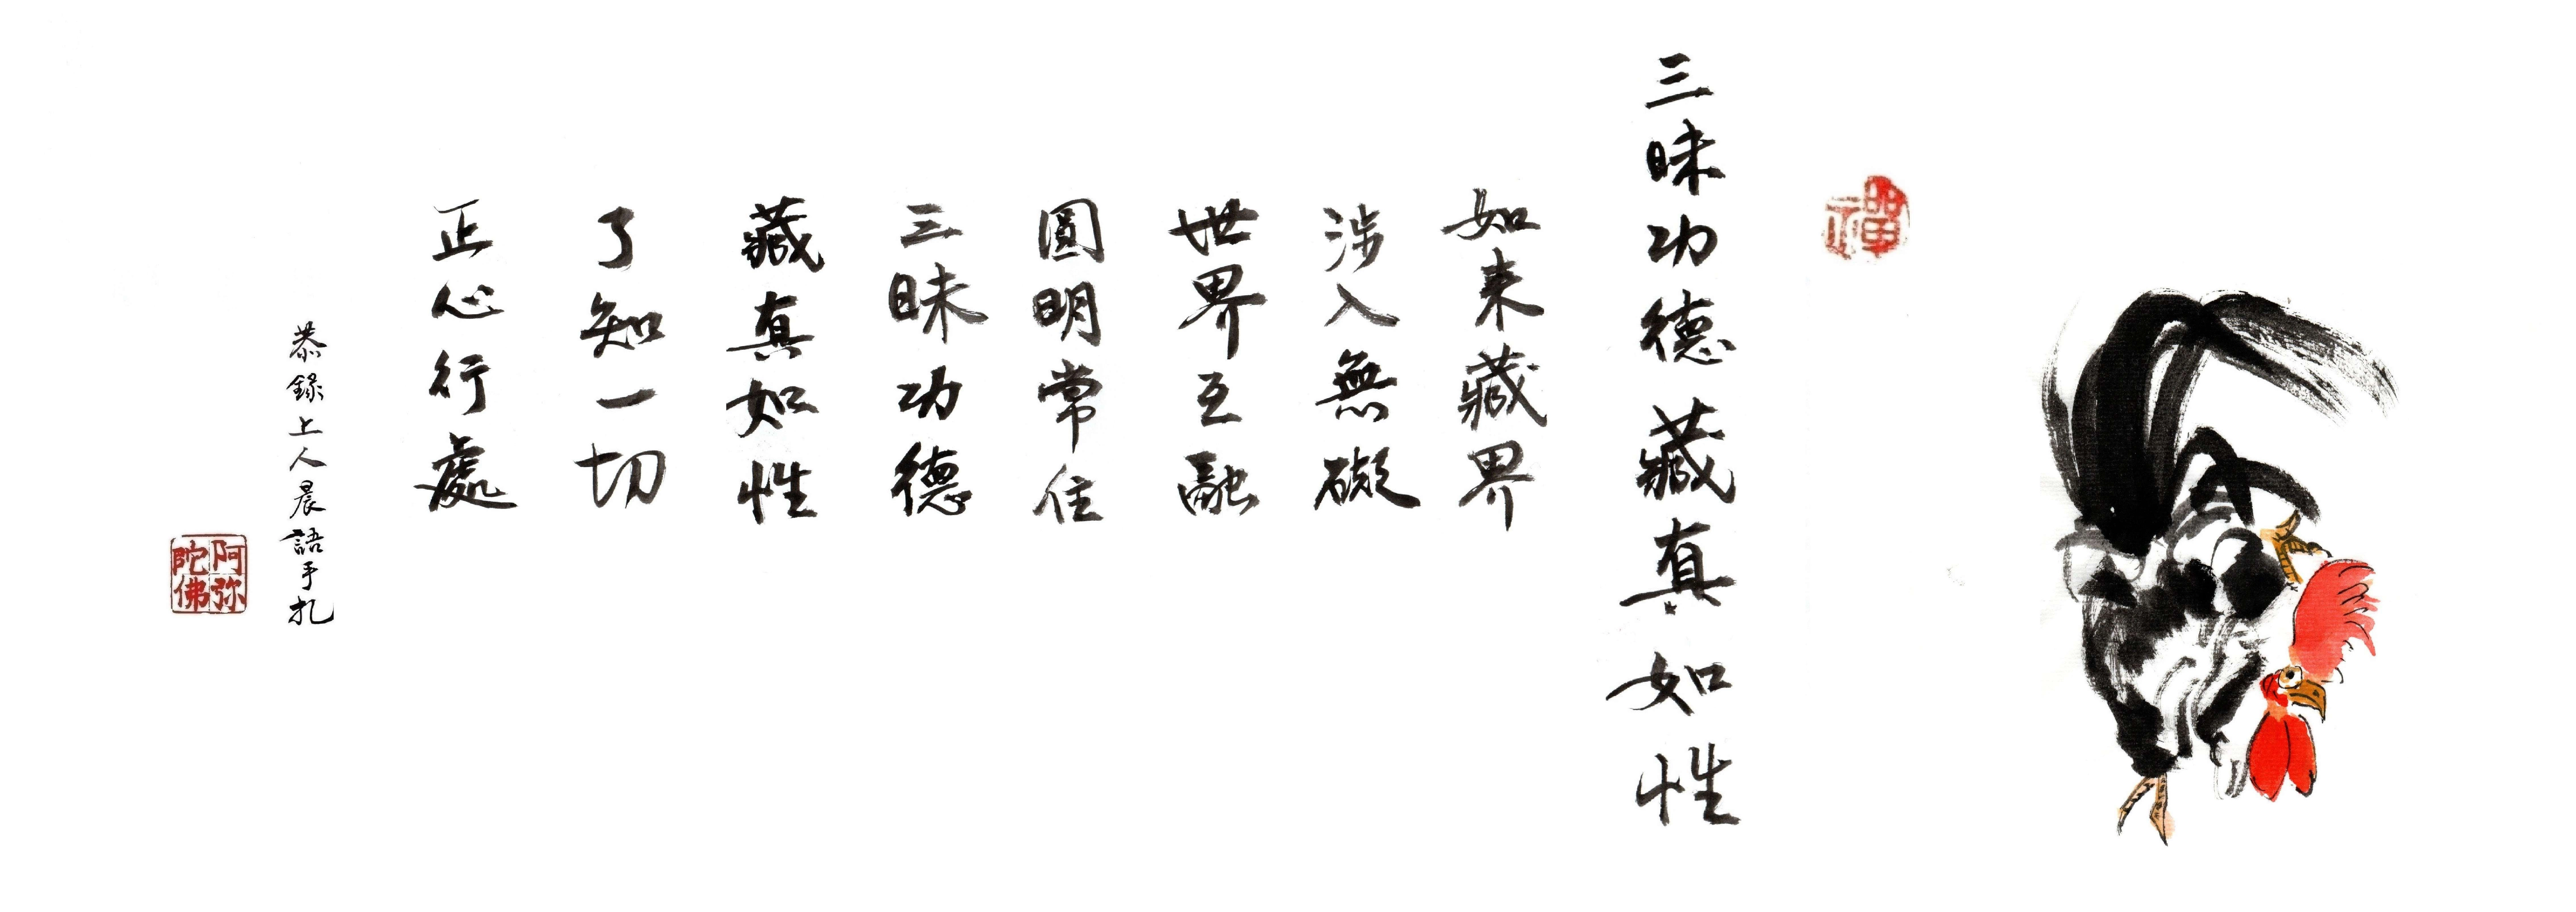 禪
三昧功德藏真如性
如来藏界
涉入無礙
世界互融
圓明常住
三昧功德
藏真如性
了知一切
正心行處
恭錄上人晨語手扎
阿弥陀佛